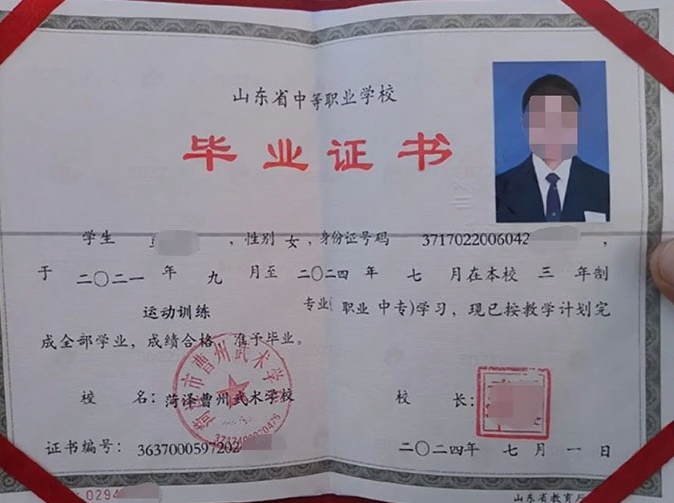 山东省中等职业学校
毕业证书
学生 ，性别 女，身份证号码 3717022006042 ，
于 二〇二一 年 九 月至 二〇二四 年 七 月在本校 三 年制
运动训练 专业( 职业 中专)学习，现已按教学计划完
成全部学业，成绩合格，准予毕业。
校 名：菏泽曹州武术学校 校 长：
市曹州武术学
证书编号：3637000597202 二〇二四年 七 月 一 日
0294
山东省教育厅